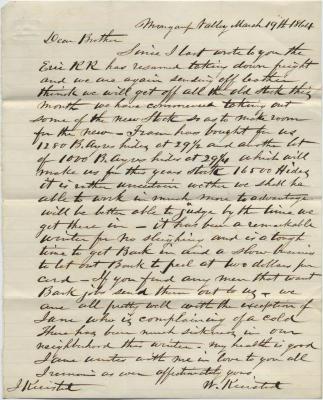 Mongaup Valley March 19th 1864
Dear Brother
Since I last wrote to you the
Erie RR has resumed taking down freight
and we are again sending off leather
think we will get off all the old stock this
month we have commenced taking out
some of the new Stock so as to make room
for the new - has bought for us
1250 B. Ayres hides at 29½ and another lot
of 1000 B. Ayres hides at 29¼ which will
make us for the years Stock 16500 Hides
it is rather uncertain wether we shall be
able to work in much more to advantage
will be better able to judge by the time we
get these in - it has been a remarkable
winter for No sleighing and is a tough
time to get Bark in and a
to let out Bark to peel at two dollars per
cord - if you find any men that want
Bark jobs send them out to us - we
are all pretty well with the exception of
Jane who is complaining of a cold
There has been much sickness in our
neighborhood this winter - my health is good
Jane unites with me in love to you all
I remain as ever affectionately yours
J Kiersted W. Kiersted